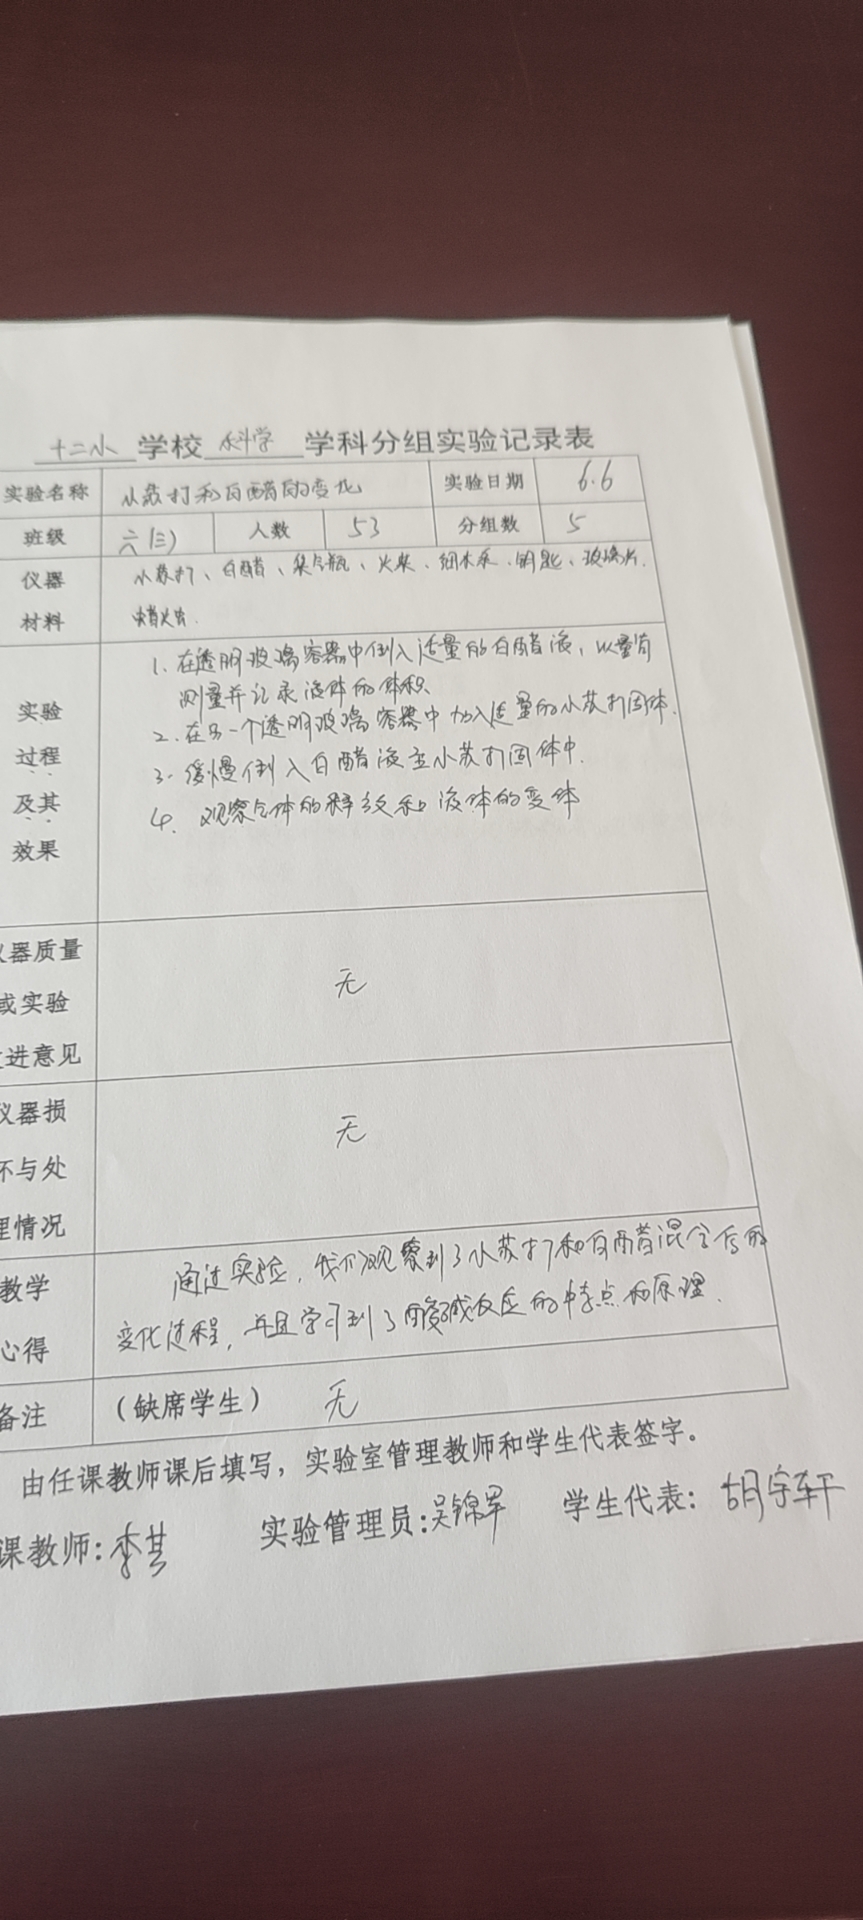 十二小 学校 科学 学科分组实验记录表
实验名称 小苏打和白醋的变化 实验日期 6.6
班级 六(三) 人数 53 分组数 5
仪器 小苏打、白醋、集气瓶、火柴、细木条、钥匙、玻璃片、
材料 蜡烛
1. 在透明玻璃容器中倒入适量的白醋液,以量筒
测量并记录液体的体积、
实验 2. 在另一个透明玻璃容器中加入适量的小苏打固体.
过程 3. 缓慢倒入白醋液至小苏打固体中.
及其 4. 观察气体的释放和液体的变体
效果
仪器质量
或实验 无
进意见
仪器损
坏与处 无
理情况
教学 通过实验,我们观察到了小苏打和白醋混合后的
心得 变化过程,并且学习到了酸碱反应的特点和原理.
备注 (缺席学生) 无
由任课教师课后填写,实验室管理教师和学生代表签字。
课教师:李 实验管理员:吴锦军 学生代表:胡宇轩